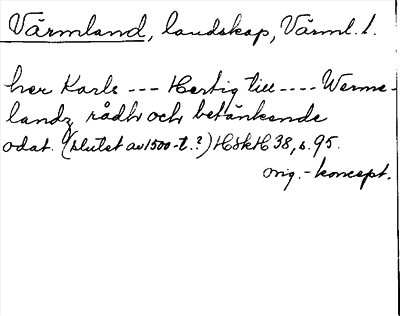 Värmland, landskap, Värml. l.
her Karls --- Hertig till ---- Werme-
landz rådh och betänkende
odat. (slutet av 1500-t.?) HSkH 38, s. 95.
orig.-koncept.